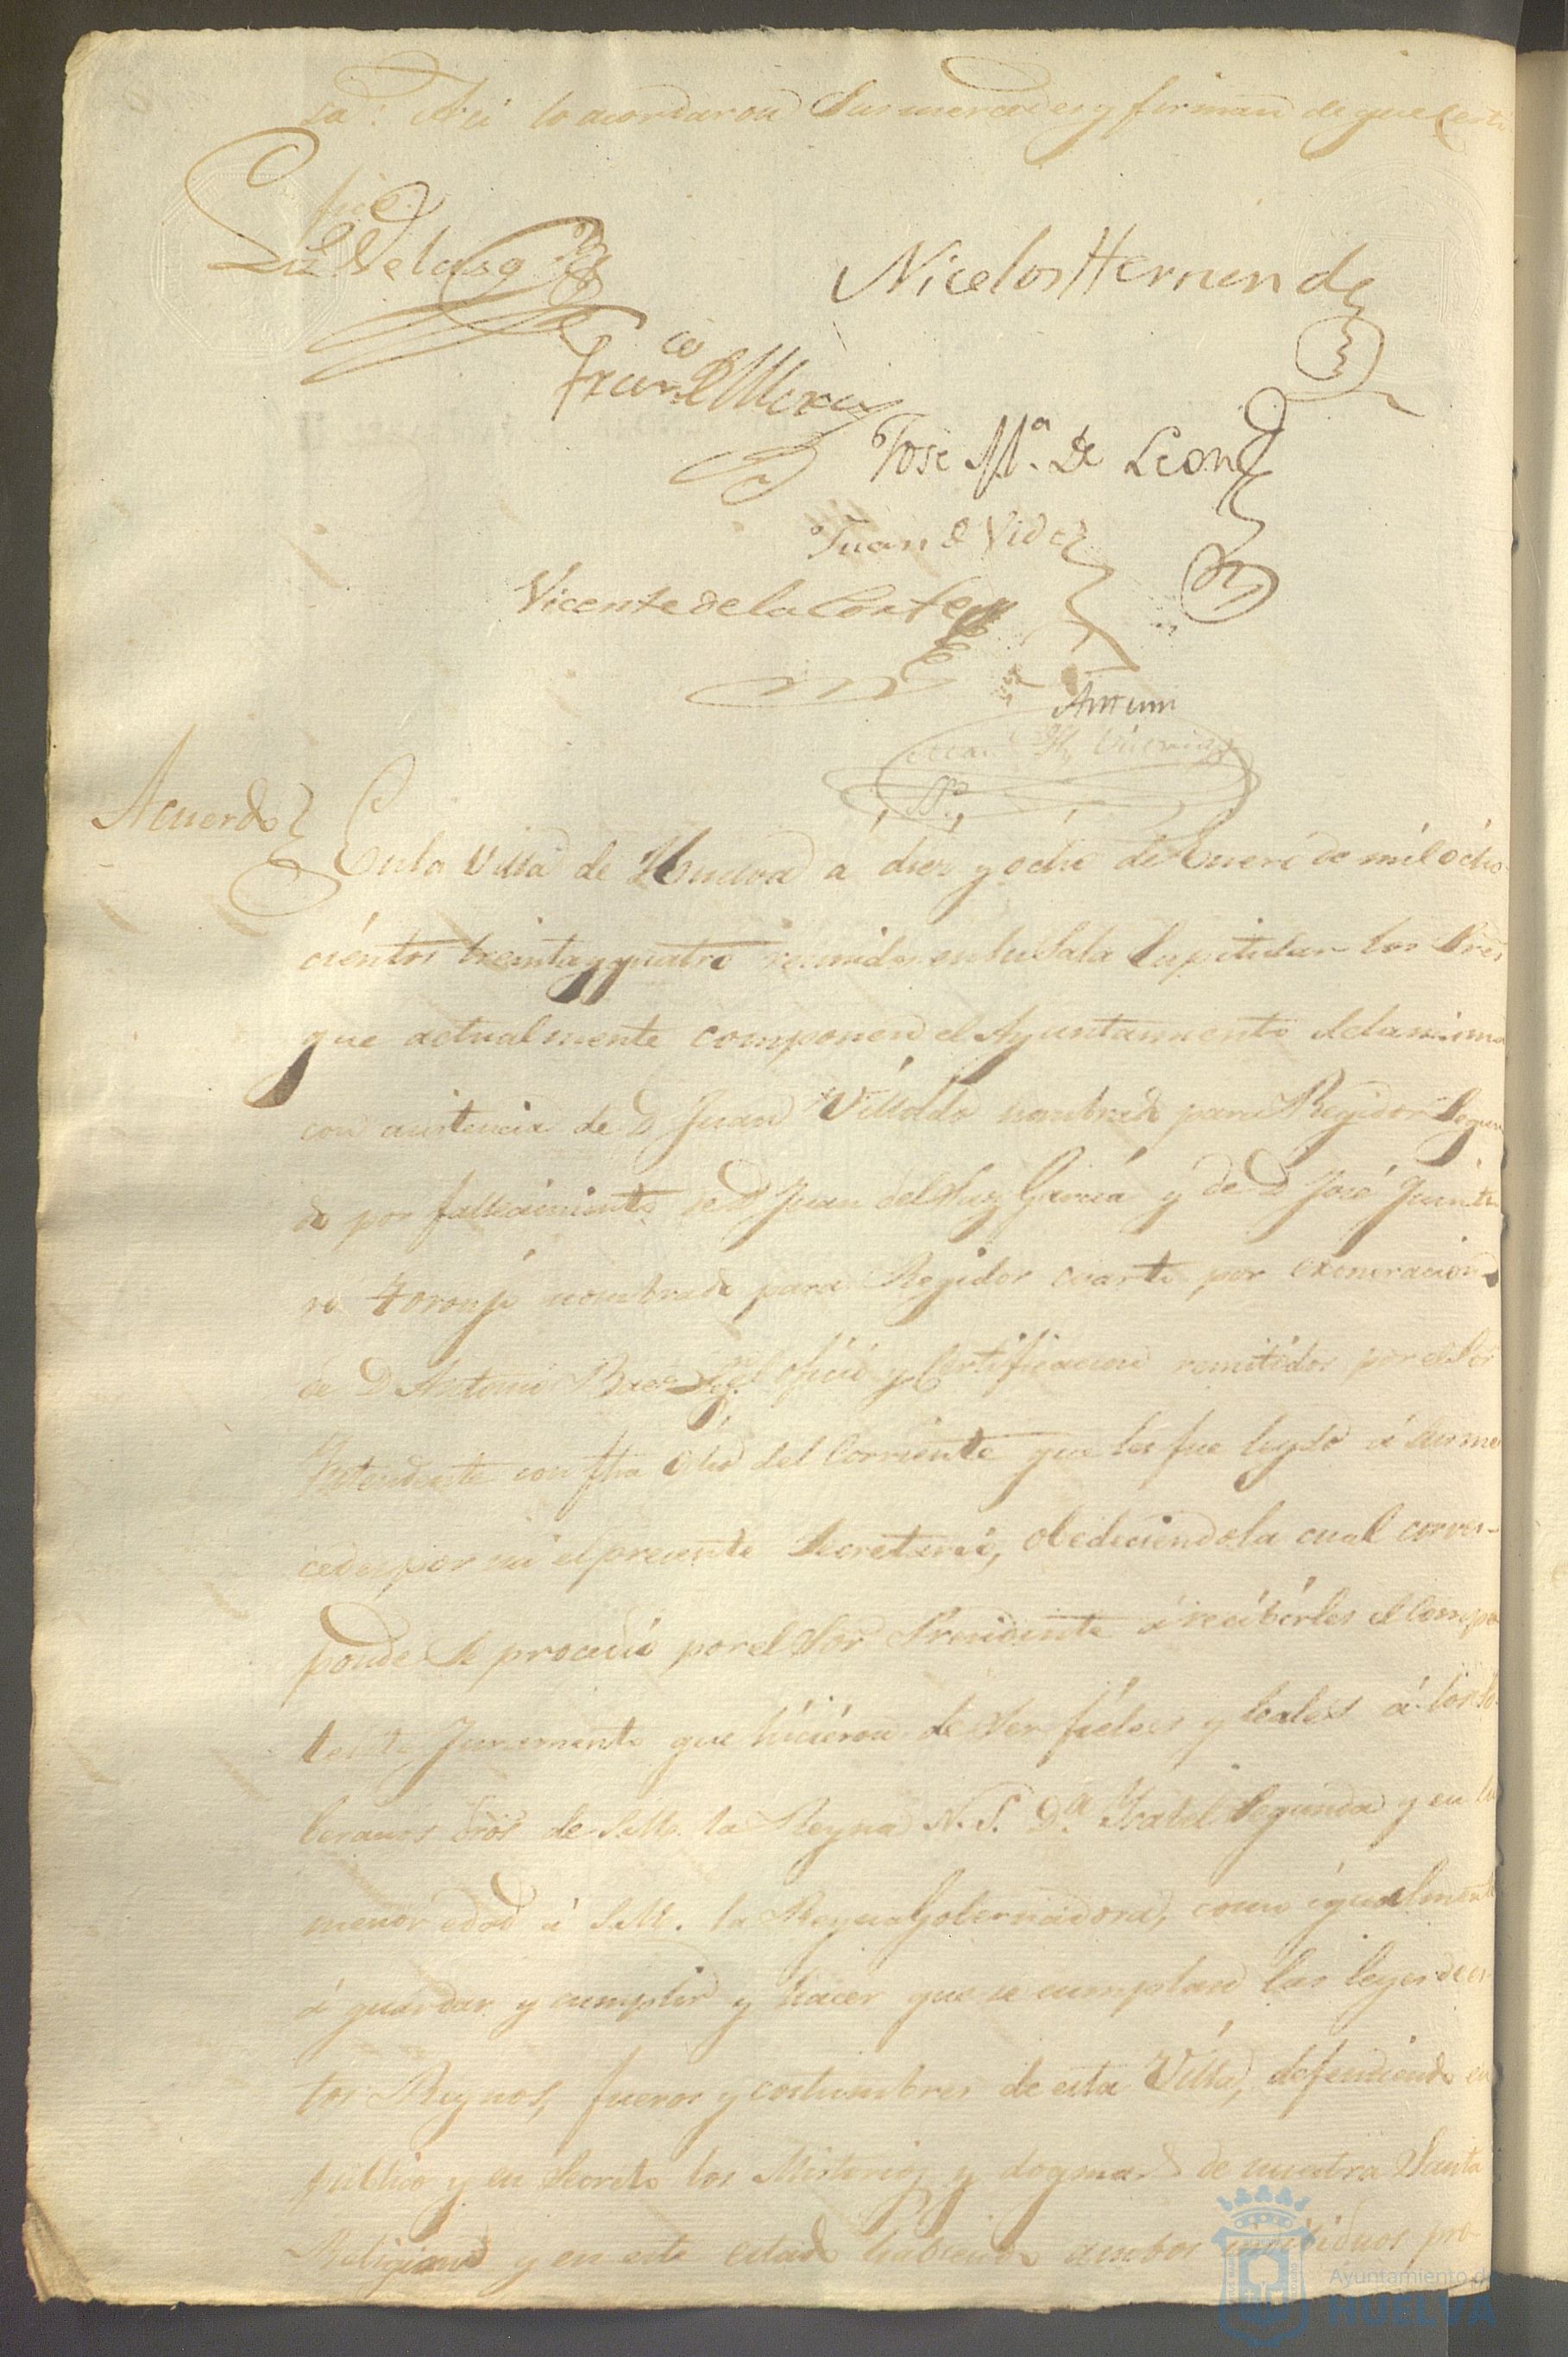 sa. Asi lo acordaron Sus mercedes y firman de que Certi
fico
Nicolos Hernende
Franco Mora
Jose Ma. De Leon
Juan de Vides
Vicente de la Corte
Antemi
Acuerdo
En la Villa de Huelva á diez y ocho de Enero de mil ocho
cientos treinta y quatro reunidos en su Sala Capitular los Sres
que actualmente componen el Ayuntamiento de la misma
con asistencia de D Juan Villoldo nombrado para Regidor Segun
do por fallecimiento de D Juan García y de D José Quinte
ro toronjo nombrado para Regidor cuarto por exoneracion
de D Antonio oficio y Certificacion remitidos por el Sor
Yntendente con fha ocho del Corriente que les fue leydo á sus mer
cedes por mi el presente Secretario, obedeciendola cual corres-
ponde se procedió por el Sor Presidente á recibirles el compe
tente Juramento que hicieron de ser fieles y leales á los So
beranos dros de S.M. la Reyna N.S. Da. Ysabel Segunda y en su
menor edad á S.M. la Reyna Gobernadora, como igualmente
á guardar y cumplir y hacer que se cumplan las leyes de es
tos Reynos, fueros y costumbres de esta Villa, defendiendo en
publico y en Secreto los Misterios y dogmas de nuestra Santa
Religion y en este estado habiendo ambos individuos pro-
Ayuntamiento de
HUELVA